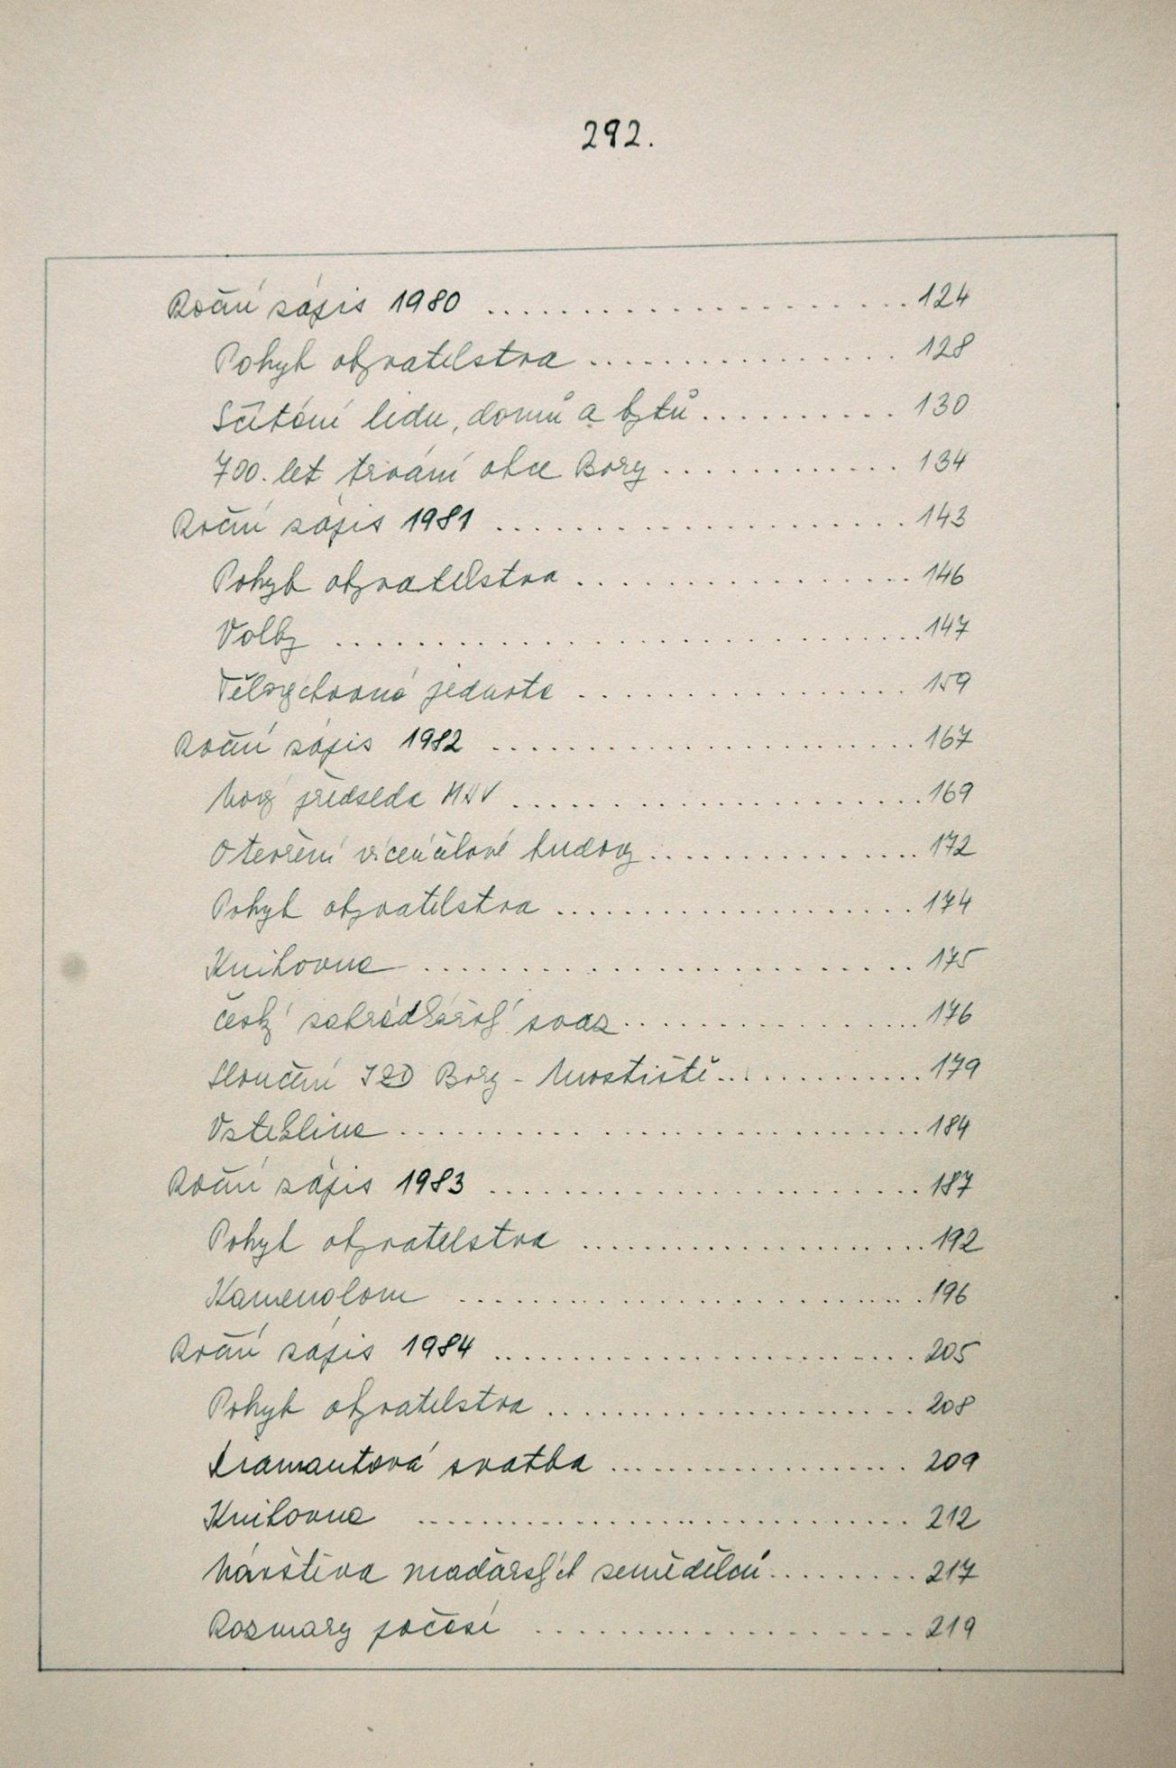 292.
Roční zápis 1980 ........................ 124
Pohyb obyvatelstva ................ 128
Sčítání lidu, domů a bytů ........... 130
700. let trvání obce Bory ............. 134
Roční zápis 1981 ..................... 143
Pohyb obyvatelstva .................. 146
Volby ................................ 147
Tělovýchovná jednota ................. 159
Roční zápis 1982 ....................... 167
Nový předseda MNV ..................... 169
Otevření víceúčelové budovy ............... 172
Pohyb obyvatelstva ................... 174
Knihovna ........................... 175
Český zahrádkářský svaz ................ 176
Sloučení JZD Bory - Mostiště ............ 179
Vzteklina ............................ 184
Roční zápis 1983 ....................... 187
Pohyb obyvatelstva .................... 192
Kamenolom .......................... 196
Roční zápis 1984 ........................ 205
Pohyb obyvatelstva ..................... 208
Diamantová svatba ................. 209
Knihovna ............................. 212
Návštěva maďarských zemědělců ......... 217
Rozmary počasí ..................... 219